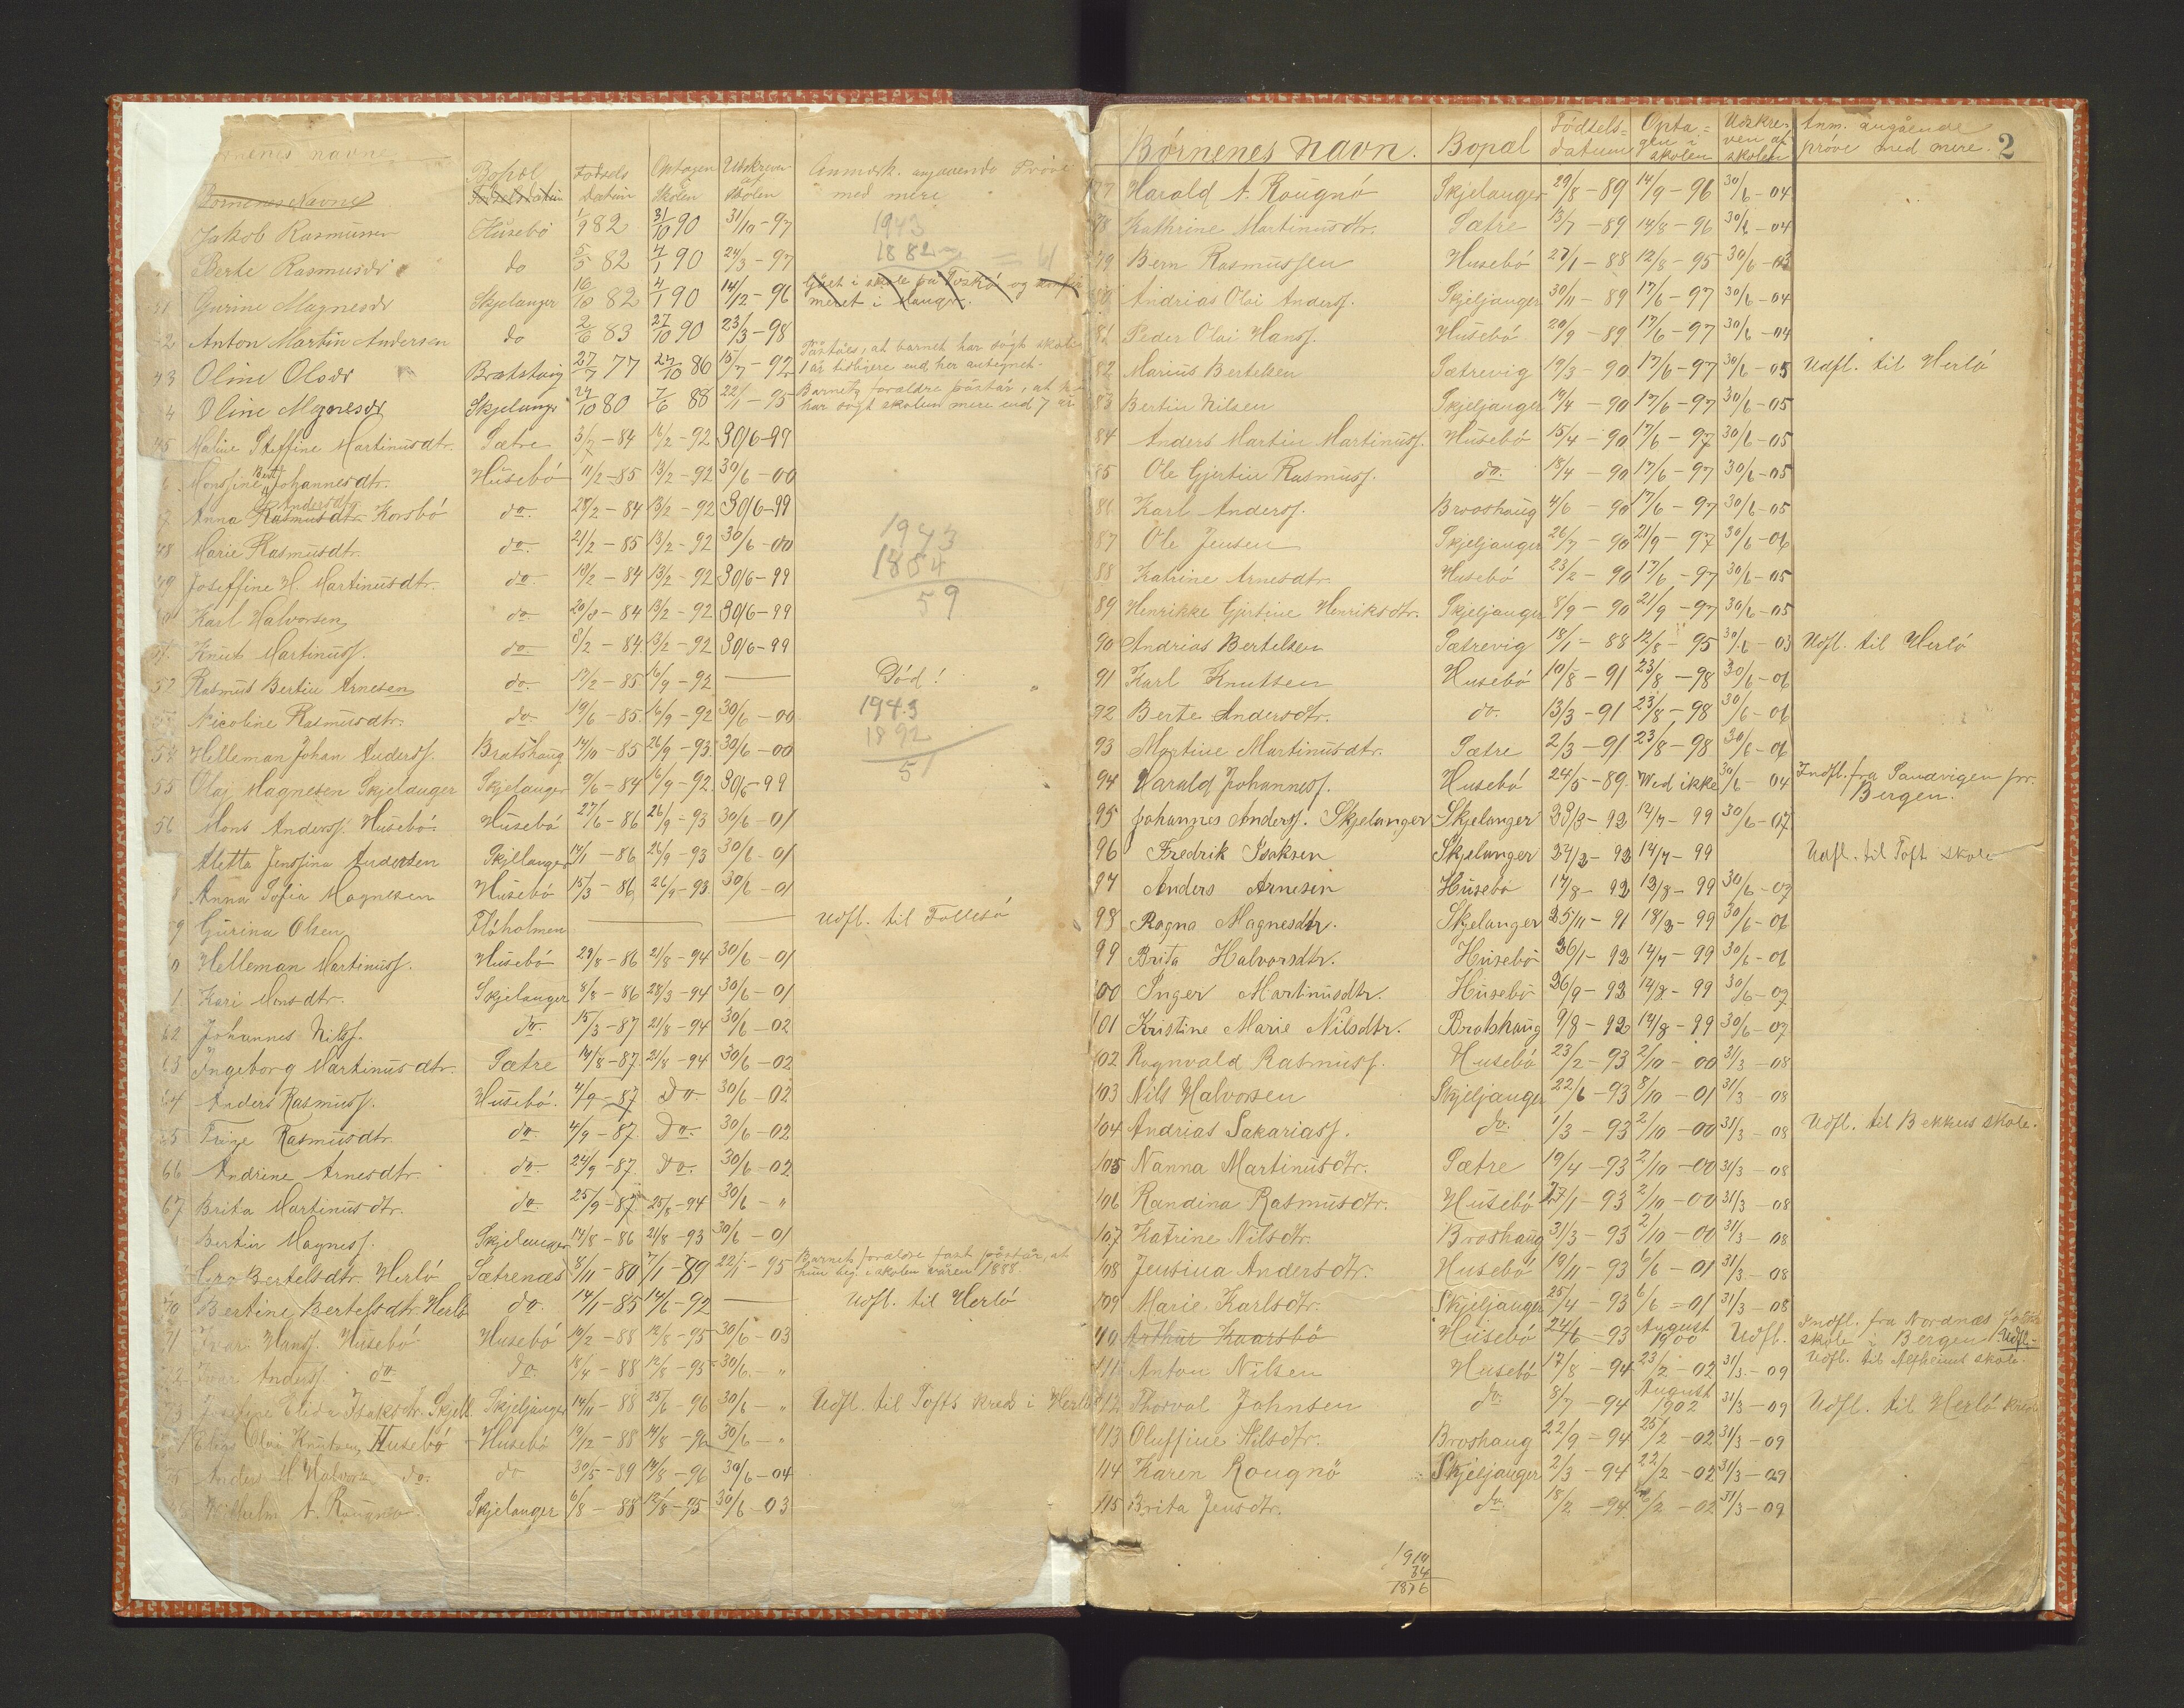 navne
Børnenes Navne
Bopæl
Fødselsdatum
Fødsels Datum
Optagen i Skolen
Udskreven af Skolen
Anmærk. angaaende Prøve med mere
Jakob Rasmussen Husebö 1/9 82 31/10 90 31/10-97
Berte Rasmusdr do 5/5 82 4/1 90 24/3-97
41 Gurine Magnesdr Skjelanger 16/10 82 4/1 90 14/12-96 Gået i skole på Toskö og
meret i Manger.
2 Anton Martin Andersen do 2/6 83 27/10 90 23/3-98
43 Oline Olsdr Bratshaug 27/7 77 27/10 86 15/7-92 Påståes, at barnet har sögt skole
1 år tidligere end her antegnet.
4 Oline Magnesdr Skjelanger 24/10 80 7/6 88 22/1-95 Barnets forældre påstår, at
har sögt skolen mere end 7 år
45 Maline Steffine Martinusdtr. Sætre 3/7-84 16/2-92 30/6-99
6 Monsine Berte Johannesdtr. Husebö 11/2-85 13/2-92 30/6-00
47 Anna Rasmusdtr. Andersdtr. Korsbö do. 28/2-84 13/2-92 30/6-99
48 Marie Rasmusdtr. do. 21/2-85 13/2-92 30/6-00
49 Joseffine H. Martinusdtr. do 19/2-84 13/2-92 30/6-99
50 Karl Halvorsen do 20/8-84 13/2-92 30/6-99
51 Knut Martinuss. do 8/2-84 13/2-92 30/6-99
52 Rasmus Bertin Arnesen do. 17/2-85 16/9-92 — Död!
53 Nicoline Rasmusdtr. do 19/6-85 16/9-92 30/6-00
54 Helleman Johan Anderss. Bratshaug 14/10-85 26/9-93 30/6-00
55 Olaj Magnesen Skjelanger Skjelanger 9/6-84 16/9-92 30/6-99
56 Mons Anderss. Husebö Husebö 27/6-86 26/9-93 30/6-01
Metta Jenssina Andersen Skjellanger 14/1-86 26/9-93 30/6-01
8 Anna Sofia Magnesen Husebö 15/3-86 26/9-93 30/6-01
9 Gurina Olsen Flöholmen — — Udfl. til Follesö
0 Helleman Martinuss. Husebö 29/8-86 21/8-94 30/6-01
1 Kari Monsdtr. Skjelanger 8/8-86 28/3-94 30/6-01
62 Johannes Nilss. do 15/3-87 21/8-94 30/6-02
63 Ingeborg Martinusdtr. Sætre 14/8-87 21/8-94 30/6-02
64 Anders Rasmuss. Husebö 4/9-87 Do. 30/6-02
65 Rasmusdtr. do. 4/9-87 Do. 30/6-02
66 Andrine Arnesdtr. do 24/9-87 Do. 30/6-02
67 Brita Martinusdtr. do 25/9-87 25/8-94 30/6-"
Bertin Magness. Skjelanger 14/8-86 21/8-93 30/6-01
Gro Bertelsdtr. Herlö Sætrenæs 8/11-80 7/1-89 22/1-95 Barnets forældre fast påstår, at
hun beg. i skolen våren 1888.
70 Bertine Bertelsdtr. Herlö do. 14/1-85 14/6-92 — Udfl. til Herlö
71 Ivar Hanss. Husebö Husebö 10/2-88 12/8-95 30/6-03
72 Ivar Anderss. do Do. 18/4-88 12/8-95 30/6-"
73 Josefine Elida Isaksdtr. Skjell. Skjeljanger 14/11-88 25/6-96 30/6-" Udfl. til Tofts kreds i Herlö
Olai Knutsen Husebö Husebö 19/12-88 14/8-96 30/6-"
Anders M. Halvors. do. do 30/5-89 14/8-96 30/6-04
Vilhelm A. Rougnö Skjelanger 6/8-88 12/8-95 30/6-03
1943
1882
1943
1884
59
1943
1892
51
Børnenes Navn. Bopæl Födsels-datum Opta-gen i skolen Udskre-ven af skolen Anm. angående pröve med mere. 2
77 Harald A. Rougnö Skjelanger 29/8-89 14/9-96 30/6-04
78 Kathrine Martinusdtr. Sætre 13/7-89 14/8-96 30/6-04
79 Bern Rasmussen Husebö 27/1-88 12/8-95 30/6-03
80 Andrias Olai Anderss. Skjeljanger 30/11-89 17/6-97 30/6-04
81 Peder Olai Hanss. Husebö 20/9-89 17/6-97 30/6-04
82 Marius Bertelsen Sætrevig 19/3-90 17/6-97 30/6-05 Udfl. til Herlö
83 Bertin Nilsen Skjeljanger 19/4-90 17/6-97 30/6-05
84 Anders Martin Martinuss. Husebö 15/4-90 17/6-97 30/6-05
85 Ole Gjertin Rasmuss. do. 18/4-90 17/6-97 30/6-05
86 Karl Anderss. Brooshaug 4/6-90 17/6-97 30/6-05
87 Ole Jensen Skjeljanger 26/7-90 21/9-97 30/6-06
88 Katrine Arnesdtr. Husebö 23/2-90 17/6-97 30/6-05
89 Henrikke Gjertine Henriksdtr. Skjeljanger 8/9-90 21/9-97 30/6-05
90 Andrias Bertelsen Sætrevig 18/1-88 12/8-95 30/6-03 Udfl. til Herlö
91 Karl Knutsen Husebö 10/8-91 23/8-98 30/6-06
92 Berte Andersdtr. do. 13/3-91 23/8-98 30/6-06
93 Martine Martinusdtr. Sætre 2/3-91 23/8-98 30/6-06
94 Harald Johanness. Husebö 24/5-89 Wed ikke 30/6-04 Indfl. fra Sandvigen pr.
Bergen.
95 Johannes Anderss. Skjelanger Skjelanger 28/3-92 14/7-99 30/6-07
96 Fredrik Isaksen Skjelanger 24/2-92 14/7-99 Udfl. til Toft skole
97 Anders Arnesen Husebö 17/8-92 13/8-99 30/6-07
98 Ragna Magnesdtr. Skjelanger 25/11-91 18/3-99 30/6-06
99 Brita Halvorsdtr. Husebö 26/1-92 14/7-99 30/6-06
100 Inger Martinusdtr. Husebö 26/9-92 14/8-99 30/6-07
101 Kristine Marie Nilsdtr. Bratshaug 9/8-92 14/8-99 30/6-07
102 Ragnvald Rasmuss. Husebö 23/2-93 2/10-00 31/3-08
103 Nils Halvorsen Skjeljanger 22/6-93 8/10-01 31/3-08
104 Andrias Sakariass. do. 1/3-93 2/10-00 31/3-08 Udfl. til Bekkus skole.
105 Nanna Martinusdtr. Sætre 19/4-93 2/10-00 31/3-08
106 Randina Rasmusdtr. Husebö 27/1-93 2/10-00 31/3-08
107 Katrine Nilsdtr. Broshaug 31/3-93 2/10-00 31/3-08
108 Jensina Andersdtr. Husebö 19/11-93 6/6-01 31/3-08
109 Marie Karlsdtr. Skjeljanger 25/4-93 6/6-01 31/3-08
110 Arthur Kaarsbö Husebö 24/6-93 August 1900 Udfl. Indfl. fra Nordnæs
skole i Bergen Udfl.
Udfl. til Alfheims skole.
111 Anton Nilsen Husebö 17/8-94 23/2-02 31/3-09
112 Thorval Johnsen do 8/7-94 August 1902 31/3-09 Udfl. til Herlö kreds
113 Oluffine Nilsdtr. Broshaug 22/9-94 25/2-02 31/3-09
114 Karen Rougnö Skjeljanger 2/3-94 22/2-02 31/3-09
115 Brita Jensdtr. do. 18/2-94 /2-02 31/3-09
1910
34
1876